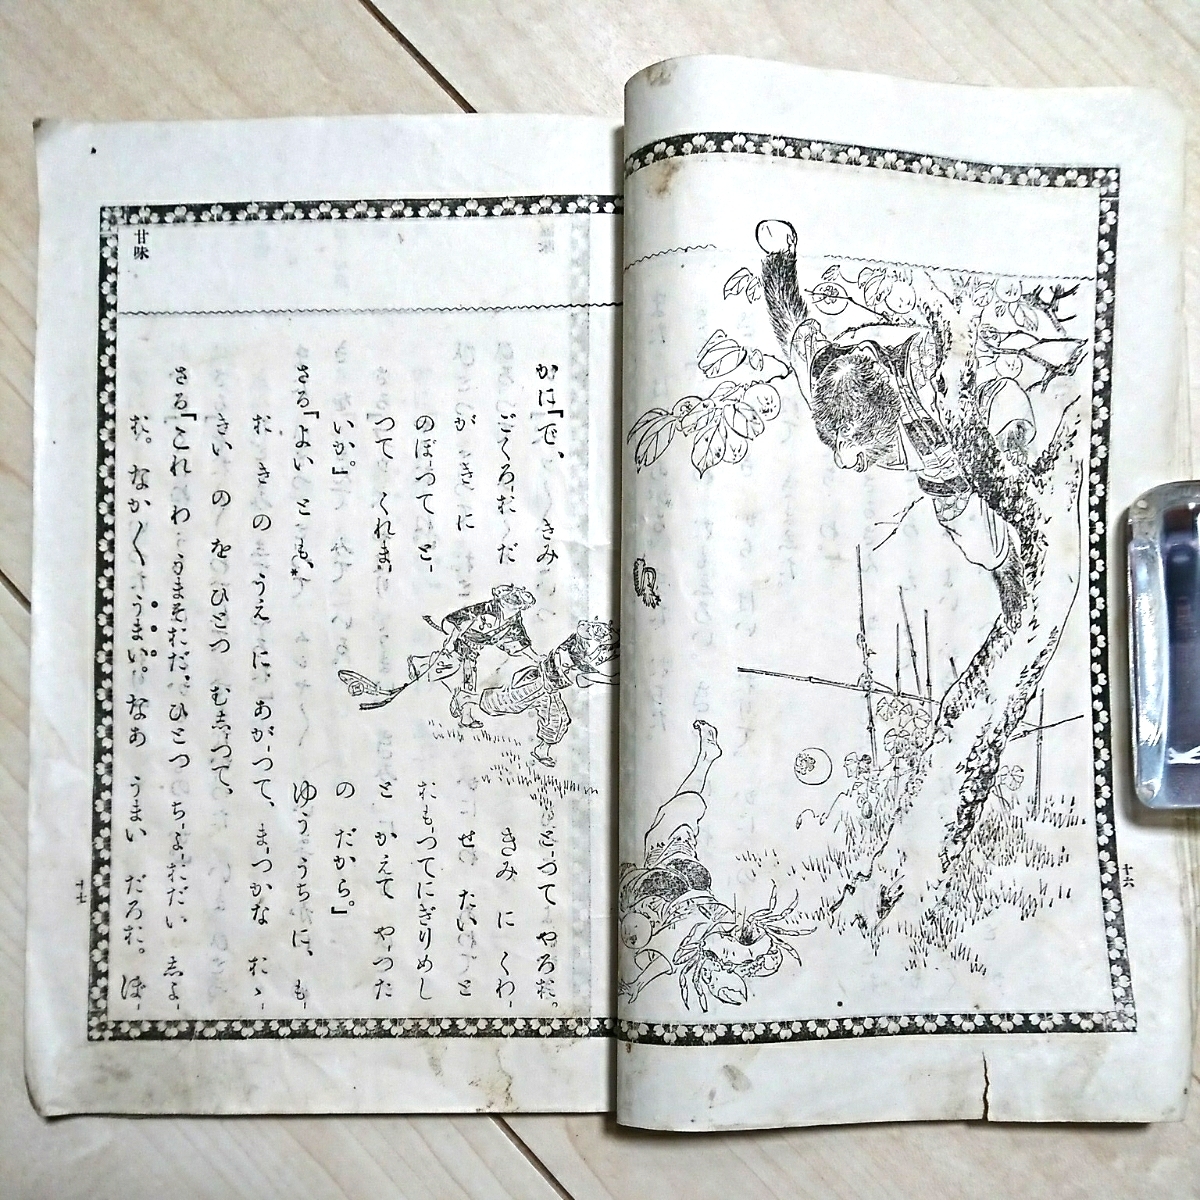 十六
かに『で、 きみ
ごくろお だ
が き に
のぼつて と-
つて くれま-
いか。』
さる『よい とも、
とつて やろお。
きみ に くわ-
せ たい と
おもつて にぎりめし
と かえて やつた
の だから。』
ゆう うち に、 も-
お き の うえ に あがつて、 まつかな おゝ-
きい の を ひとつ むしつて、
さる『これ わ うまそおだ。 ひとつ ちよおだい しよ-
お。 なか〱 うまい。 なあ うまい だろお。 ぼ-
甘味
十七